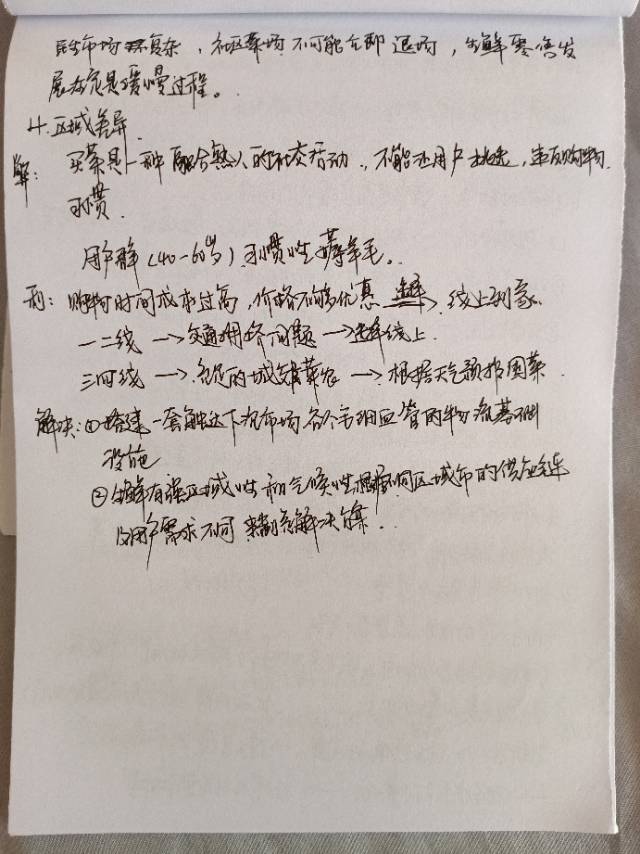 市场环复杂，社区菜场不可能立即退场，生鲜零售发
展在定是缓慢过程。
4.区域差异
解： 买菜是一种融合熟人的社交活动，不能让用户挑选，违反购物
习惯.
用户群（40-60岁）习惯性薅羊毛。
利：购物时间成本过高，价格不够优惠 选择→ 线上到家.
一二线 → 交通拥挤问题 → 选择线上.
三四线 → 充足的城镇菜农 → 根据天气预报囤菜.
解决：①搭建一套触达下沉市场各个毛细血管的物流基础
设施
②生鲜有强区域性和气候性根据不同区域市的供应链
及用户需求不同 来制定解决方案.